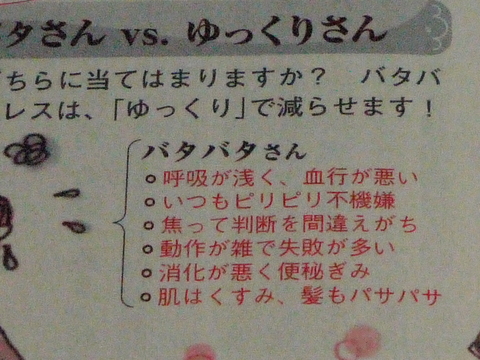 タさん vs. ゆっくりさん
ちらに当てはまりますか？ バタバ
レスは、「ゆっくり」で減らせます！
バタバタさん
○呼吸が浅く、血行が悪い
○いつもピリピリ不機嫌
○焦って判断を間違えがち
○動作が雑で失敗が多い
○消化が悪く便秘ぎみ
○肌はくすみ、髪もパサパサ